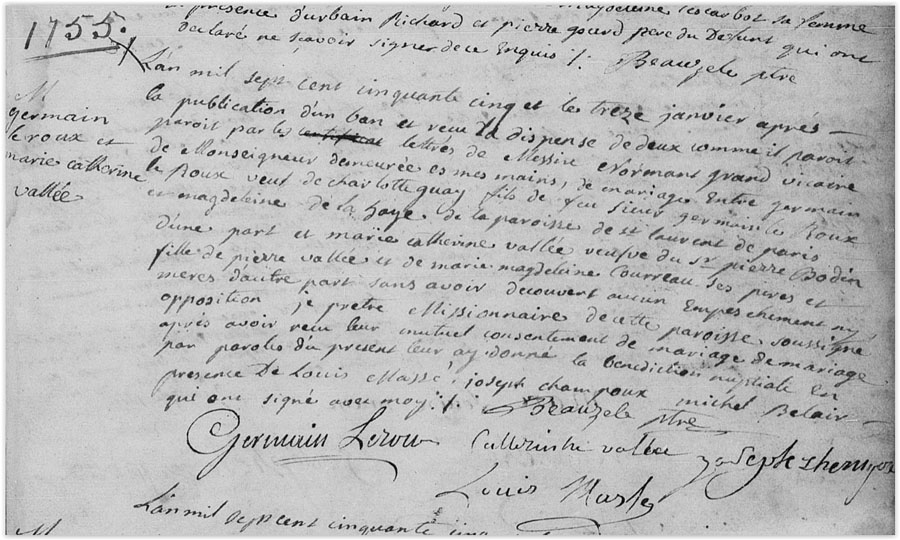 presence d'urbain Richard et pierre gourd pere du Defunt qui ont
declaré ne scavoir signer de ce Enquis /: Beauzele ptre
1755.
M
germain
leroux et
marie catherine
vallée
L'an mil sept cent cinquante cinq et le treze janvier aprés
la publication d'un ban et reçu la dispense de deux comme il paroit
paroit par les certificat lettres de Messire Normant grand vicaire
de Monseigneur demeurées es mes mains, de mariage Entre germain
le Roux veuf de charlotte quay fils de feu sieur germain le Roux
et magdeleine de la haye de la paroisse de st laurent de paris
d'une part et marie catherine vallée veufve du sr pierre Bodin
fille de pierre vallée et de marie magdeleine Courreau ses peres et
meres d'autre part sans avoir decouvert aucun Empeschement ny
opposition je pretre Missionnaire de cette paroisse soussigné
aprés avoir reçu leur mutuel consentement de mariage de mariage
par paroles du present leur ay donné la benediction nuptiale En
presence De Louis Massé, joseph champoux michel Belair
qui ont signé avec moy /: Beauzele ptre
Germain Lerou Catterinne vallee
Louis Masse
L'an mil sept cent cinquante cinq
M